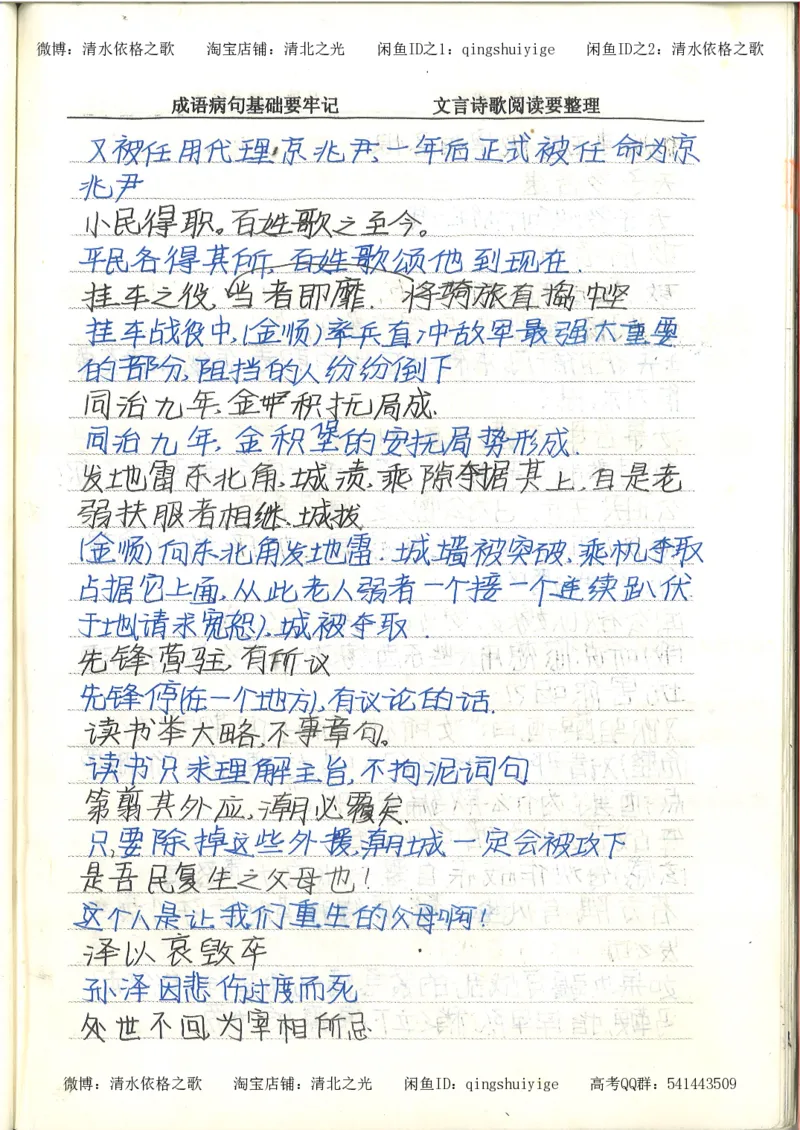 微博：清水依格之歌 淘宝店铺：清北之光 闲鱼ID之1：qingshuiyige 闲鱼ID之2：清水依格之歌
成语病句基础要牢记 文言诗歌阅读要整理
又被任用代理京兆尹，一年后正式被任命为京
兆尹
小民得职。百姓歌之至今。
平民各得其所，百姓歌颂他到现在．
挂车之役，当者即靡．将骑旅直捣中坚
挂车战役中，(金顺)率兵直冲敌军最强大重要
的部分，阻挡的人纷纷倒下
同治九年，金积抚局成．
同治九年，金积堡的安抚局势形成．
发地雷东北角，城溃，乘隙夺据其上，自是老
弱扶服者相继．城拔
(金顺)向东北角发地雷．城墙被突破，乘机夺取
占据它上面，从此老人弱者一个接一个连续趴伏
于地(请求宽恕)，城被夺取．
先锋营驻，有所议
先锋停(在一个地方)，有议论的话．
读书举大略，不事章句。
读书只求理解主旨，不拘泥词句
第翦其外应，潮必覆矣．
只要除掉这些外援，潮城一定会被攻下
是吾民复生之父母也！
这个人是让我们重生的父母啊！
泽以哀毁卒
孙泽因悲伤过度而死
处世不回，为宰相所忌
微博：清水依格之歌 淘宝店铺：清北之光 闲鱼ID：qingshuiyige 高考QQ群：541443509